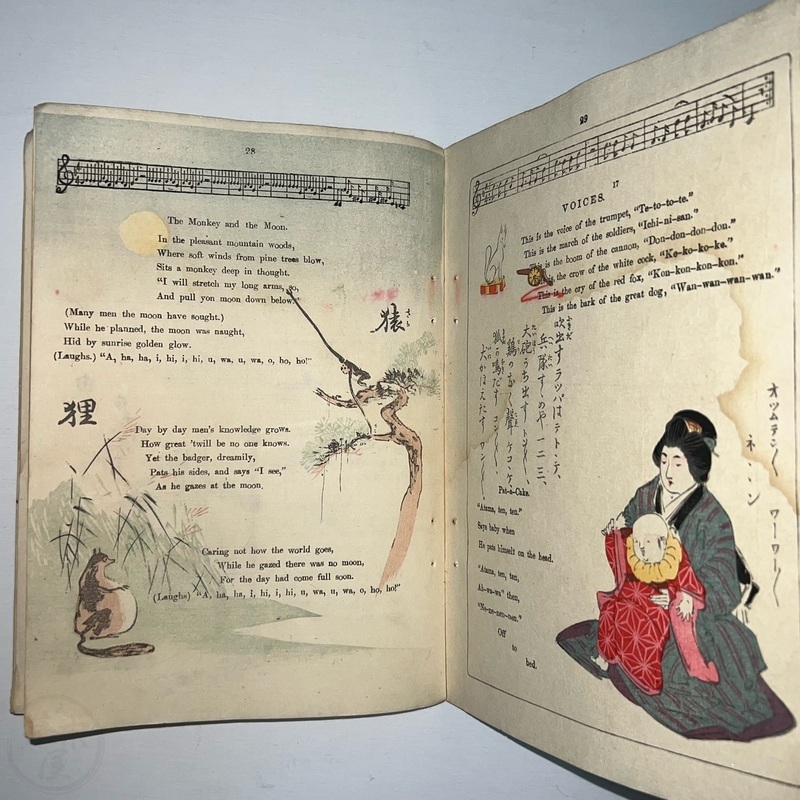 28
The Monkey and the Moon.
In the pleasant mountain woods,
Where soft winds from pine trees blow,
Sits a monkey deep in thought.
"I will stretch my long arms, so,
And pull yon moon down below."
(Many men the moon have sought.)
While he planned, the moon was naught,
Hid by sunrise golden glow.
(Laughs.) "A, ha, ha, i, hi, i, hi, u, wa, u, wa, o, ho, ho!"
猿
さる
狸
Day by day men's knowledge grows.
How great 'twill be no one knows.
Yet the badger, dreamily,
Pats his sides, and says "I see,"
As he gazes at the moon.
Caring not how the world goes,
While he gazed there was no moon,
For the day had come full soon.
(Laughs) "A, ha, ha, i, hi, i, hi, u, wa, u, wa, o, ho, ho!"
29
17
VOICES.
This is the voice of the trumpet, "Te-to-to-te."
This is the march of the soldiers, "Ichi-ni-san."
This is the boom of the cannon, "Don-don-don-don."
This is the crow of the white cock, "Ko-ko-ko-ke."
This is the cry of the red fox, "Kon-kon-kon-kon."
This is the bark of the great dog, "Wan-wan-wan-wan."
吹出すラッパはテトテ、
兵隊すゝめや 一二三、
大砲うち出す
Pat-a-Cake.
"Atama, ten, ten."
Says baby when
He pats himself on the head.
"Atama, ten, ten,
Ah-wa-wa" then,
"Ne-ne-nen-nen."
Off
to
bed.
オツムテン〱
ネ、ン
ワーワー〱